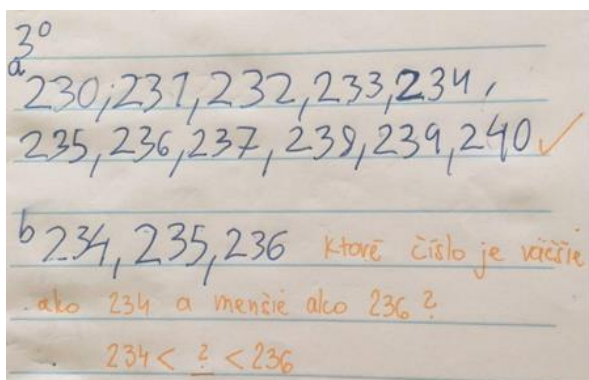 3°
a 230, 231, 232, 233, 234,
235, 236, 237, 238, 239, 240 ✓
b 234, 235, 236 Ktoré číslo je väčšie
ako 234 a menšie ako 236?
234 < ? < 236